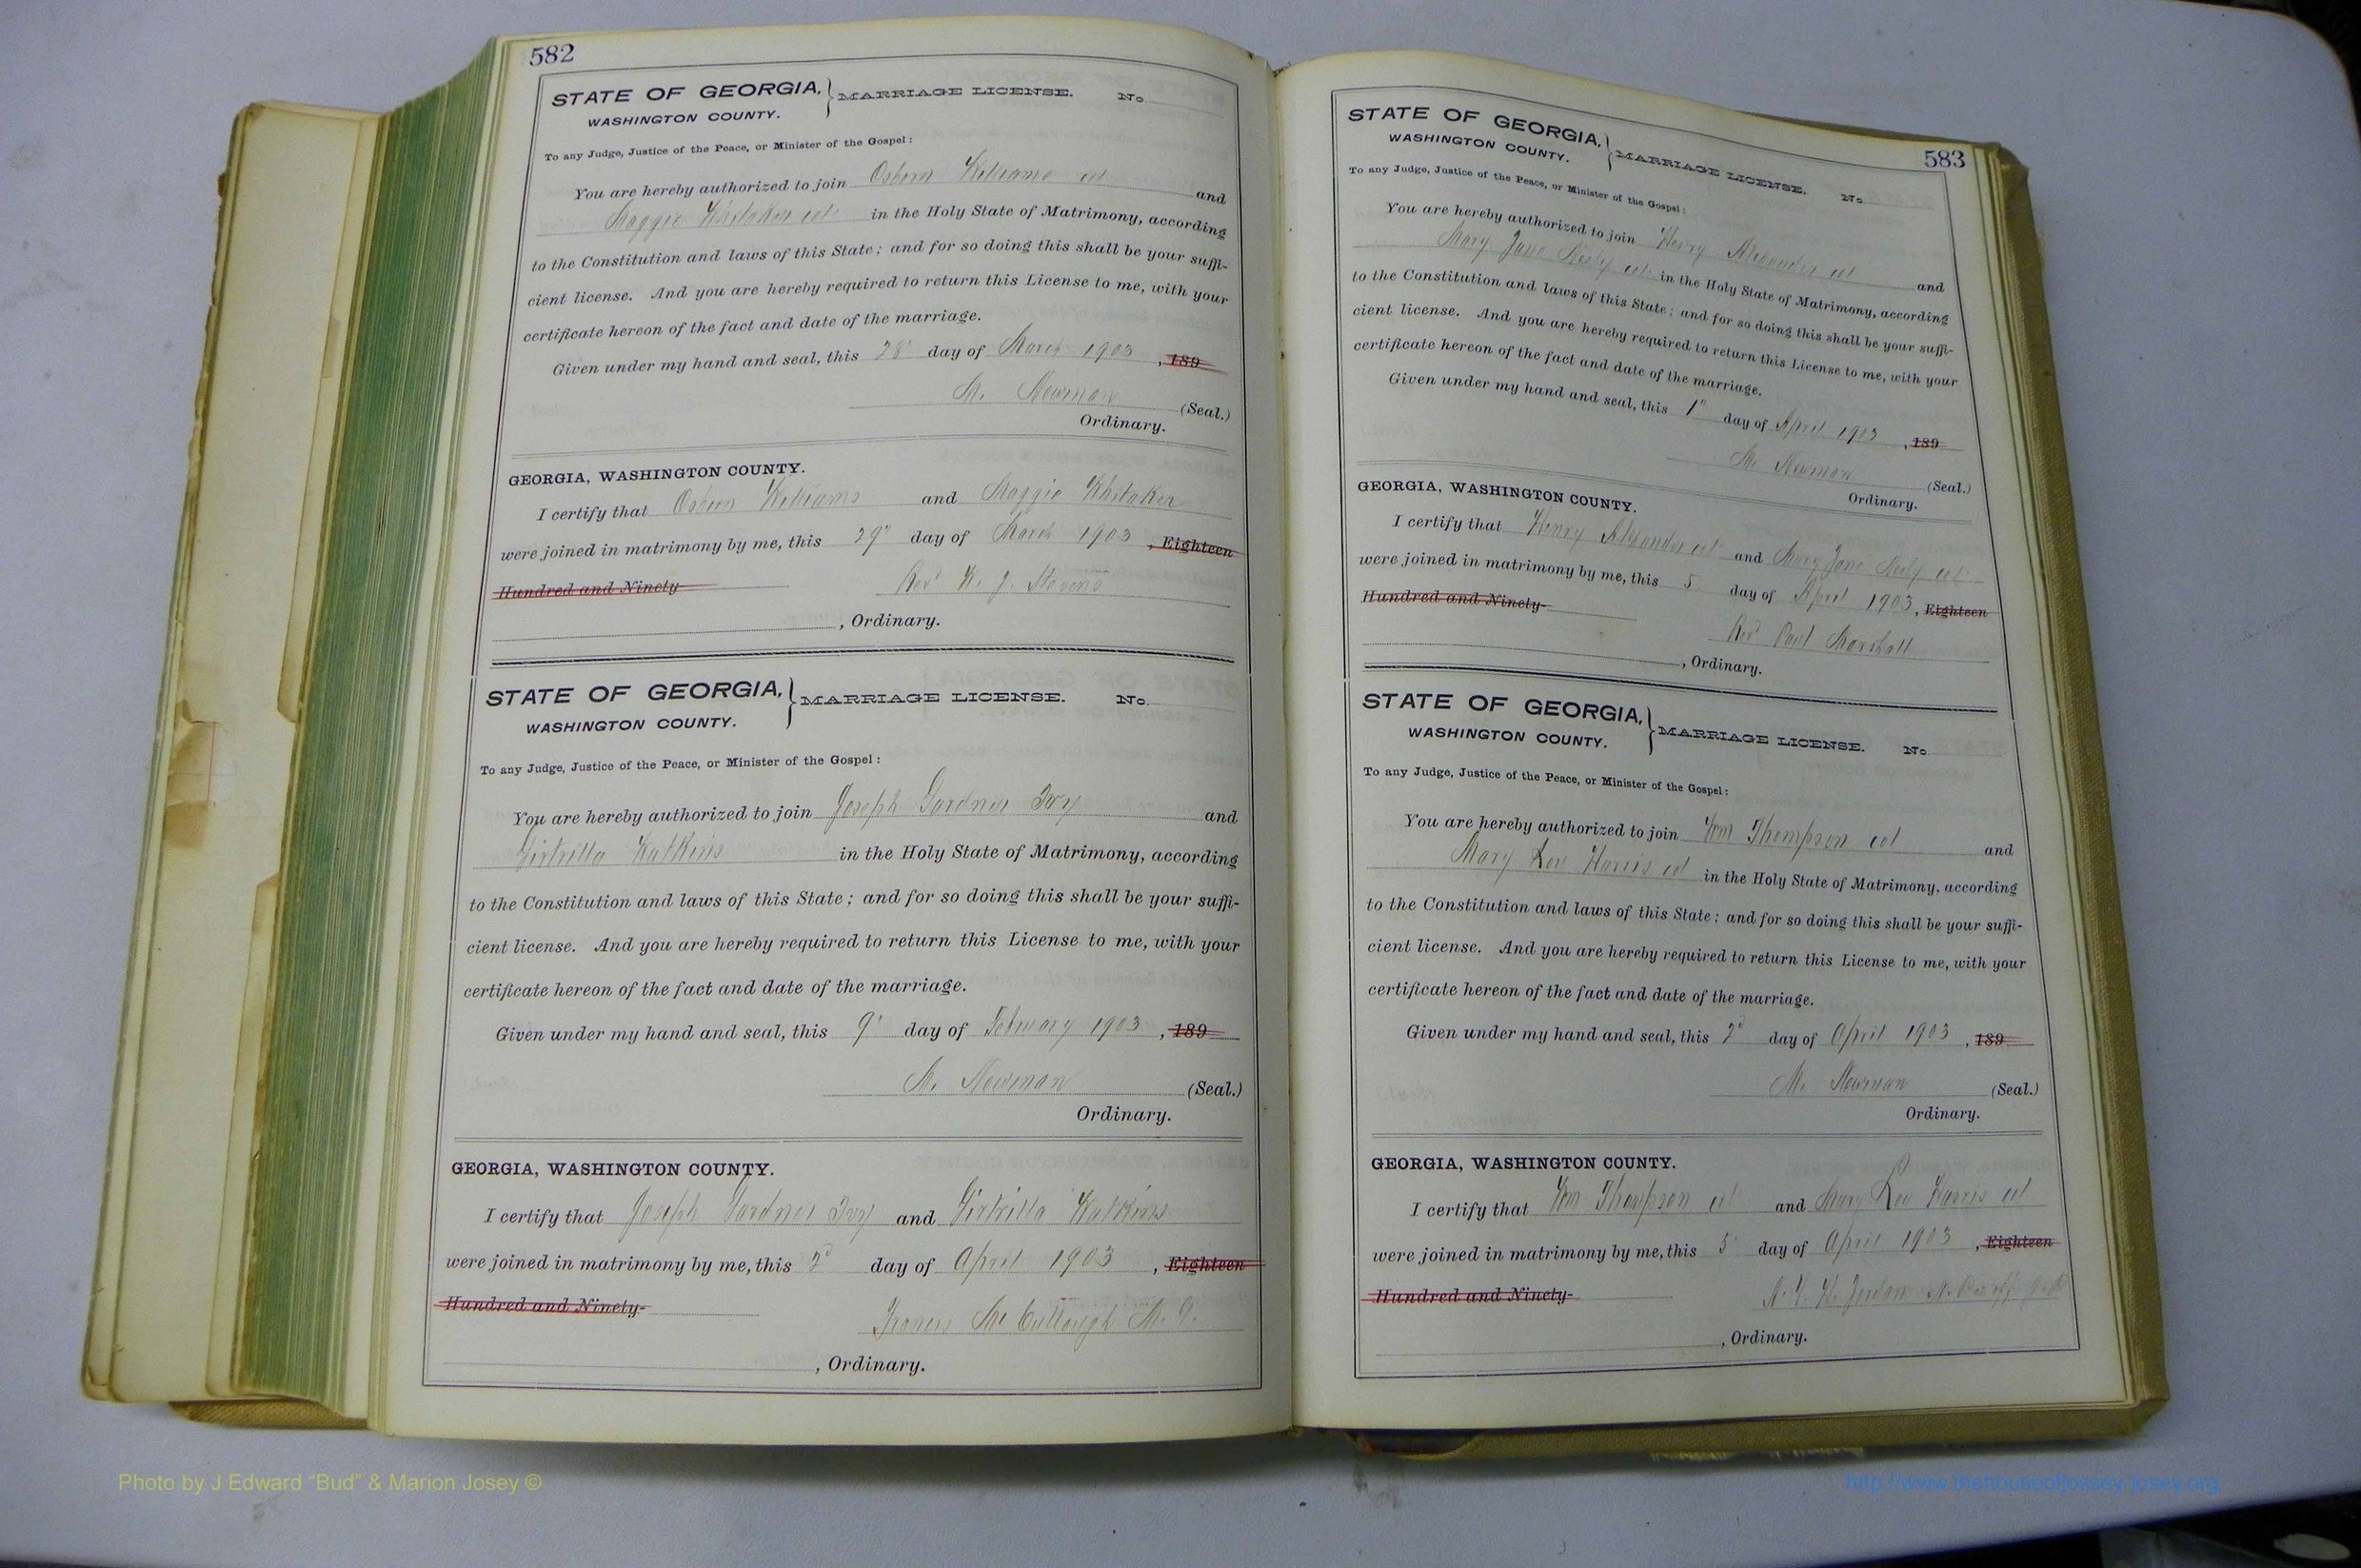 582
STATE OF GEORGIA, } MARRIAGE LICENSE. No.
WASHINGTON COUNTY.
To any Judge, Justice of the Peace, or Minister of the Gospel:
You are hereby authorized to join Osborn Williams col and
Maggie Whitaker col in the Holy State of Matrimony, according
to the Constitution and laws of this State; and for so doing this shall be your suffi-
cient license. And you are hereby required to return this License to me, with your
certificate hereon of the fact and date of the marriage.
Given under my hand and seal, this 28" day of March 1903, 189
M. Newman (Seal.)
Ordinary.
GEORGIA, WASHINGTON COUNTY.
I certify that Osborn Williams and Maggie Whitaker
were joined in matrimony by me, this 29" day of March 1903, Eighteen
Hundred and Ninety- Rev W. J. Stevens
, Ordinary.
STATE OF GEORGIA, } MARRIAGE LICENSE. No.
WASHINGTON COUNTY.
To any Judge, Justice of the Peace, or Minister of the Gospel:
You are hereby authorized to join Joseph Gardner Ivy and
Watkins in the Holy State of Matrimony, according
to the Constitution and laws of this State; and for so doing this shall be your suffi-
cient license. And you are hereby required to return this License to me, with your
certificate hereon of the fact and date of the marriage.
Given under my hand and seal, this 9" day of February 1903, 189
M. Newman (Seal.)
Ordinary.
GEORGIA, WASHINGTON COUNTY.
I certify that Joseph Gardner Ivy and Watkins
were joined in matrimony by me, this 2d day of April 1903, Eighteen
Hundred and Ninety-
Francis McCullough M. G.
, Ordinary.
583
STATE OF GEORGIA, } MARRIAGE LICENSE. No.
WASHINGTON COUNTY.
To any Judge, Justice of the Peace, or Minister of the Gospel:
You are hereby authorized to join Henry Alexander col and
Mary Jane Neely col in the Holy State of Matrimony, according
to the Constitution and laws of this State; and for so doing this shall be your suffi-
cient license. And you are hereby required to return this License to me, with your
certificate hereon of the fact and date of the marriage.
Given under my hand and seal, this 1" day of April 1903, 189
M. Newman (Seal.)
Ordinary.
GEORGIA, WASHINGTON COUNTY.
I certify that Henry Alexander col and Mary Jane Neely col
were joined in matrimony by me, this 5 day of April 1903, Eighteen
Hundred and Ninety-
Rev Paul Marshall
, Ordinary.
STATE OF GEORGIA, } MARRIAGE LICENSE. No.
WASHINGTON COUNTY.
To any Judge, Justice of the Peace, or Minister of the Gospel:
You are hereby authorized to join Wm Thompson col and
Mary Lou Harris col in the Holy State of Matrimony, according
to the Constitution and laws of this State; and for so doing this shall be your suffi-
cient license. And you are hereby required to return this License to me, with your
certificate hereon of the fact and date of the marriage.
Given under my hand and seal, this 2d day of April 1903, 189
M. Newman (Seal.)
Ordinary.
GEORGIA, WASHINGTON COUNTY.
I certify that Wm Thompson col and Mary Lou Harris col
were joined in matrimony by me, this 5 day of April 1903, Eighteen
Hundred and Ninety- Jordan
, Ordinary.
Photo by J Edward “Bud” & Marion Josey ©
http://www.thehouseofjossey-josey.org